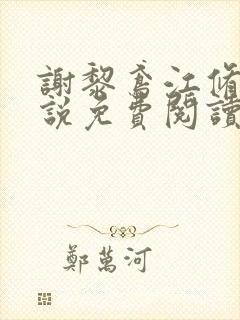 謝黎鳶江脩
說免費閱讀
鄭萬河